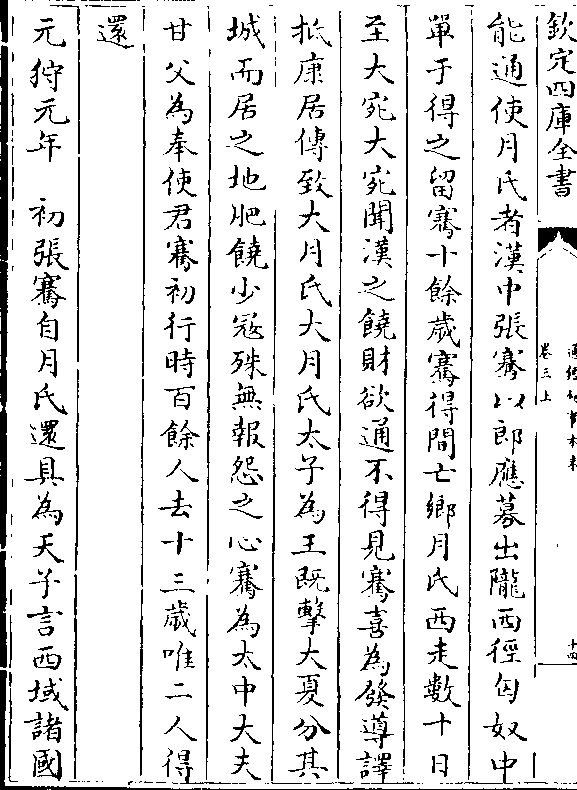 欽定四庫全書
通鑑紀事本末
卷三上
十四
能通使月氏者漢中張騫以郎應募出隴西徑匈奴中
單于得之留騫十餘歲騫得間亡鄉月氏西走數十日
至大宛大宛聞漢之饒財欲通不得見騫喜為發導譯
抵康居傳致大月氏大月氏太子為王既擊大夏分其
城而居之地肥饒少冦殊無報怨之心騫為太中大夫
甘父為奉使君騫初行時百餘人去十三歲唯二人得
還
元狩元年　初張騫自月氏還具為天子言西域諸國